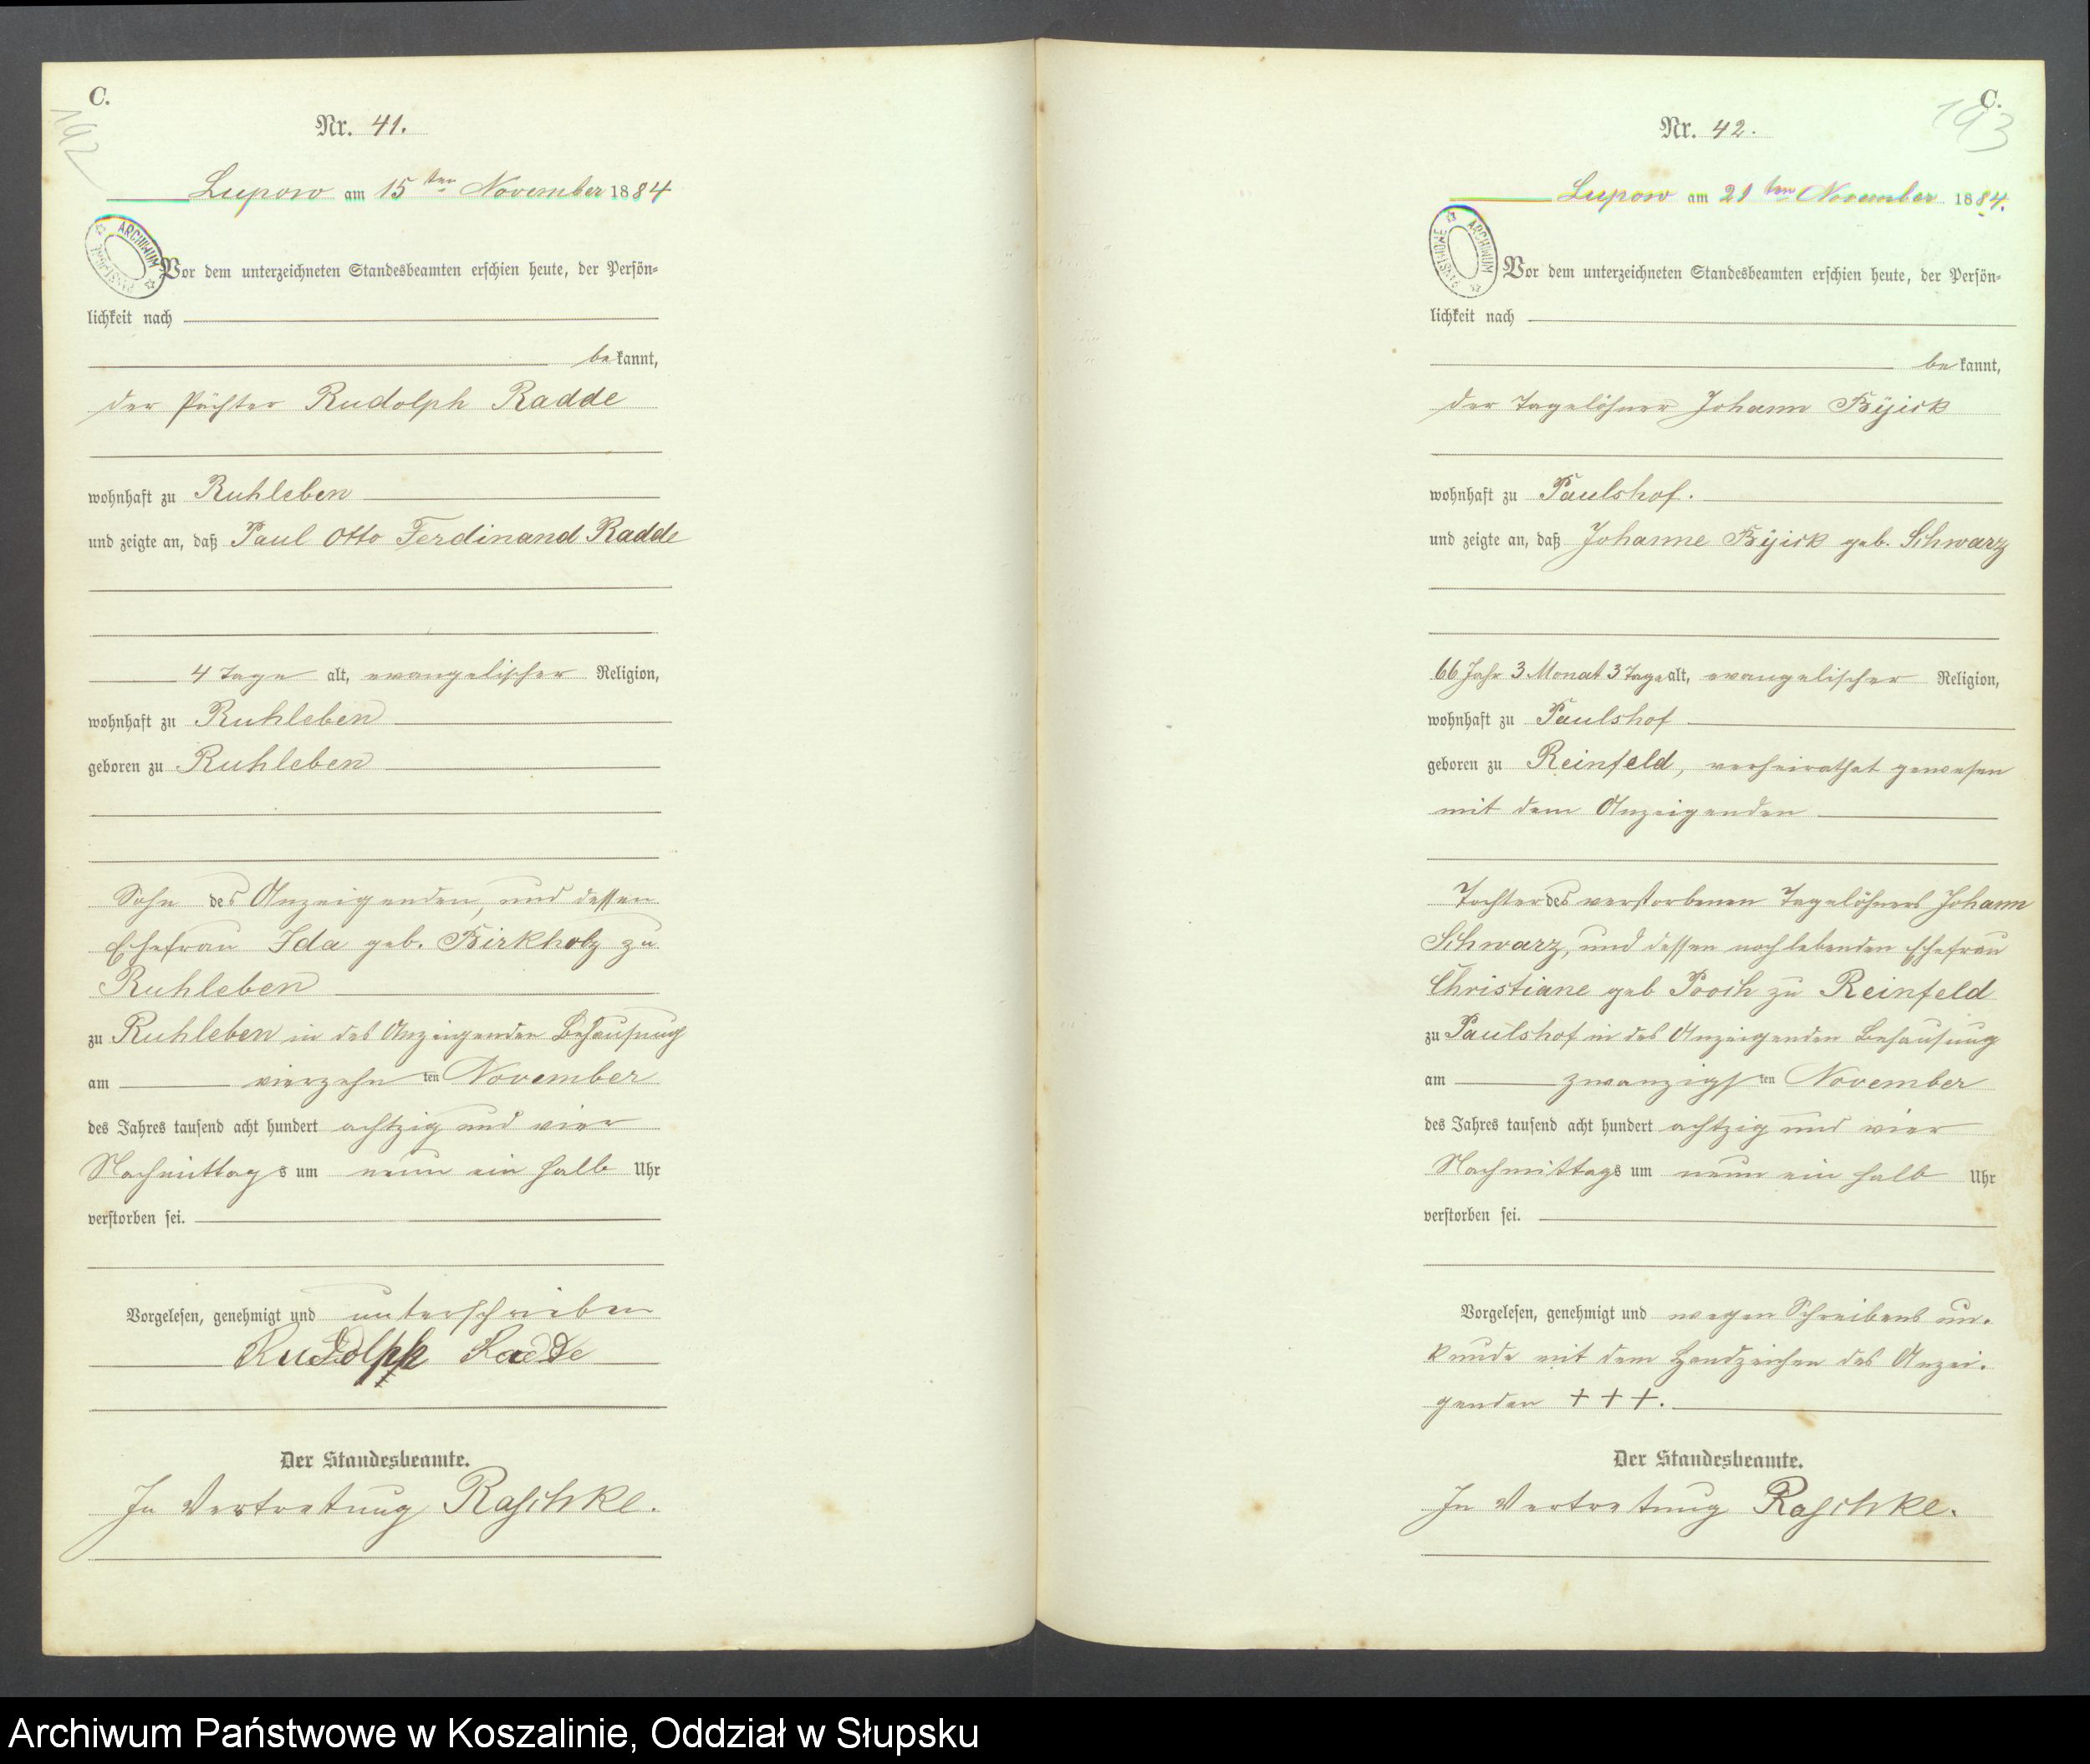 C.
192
Nr. 41.
Lupow am 15ten November 1884
ARCHIWUM PAŃSTWOWE
Vor dem unterzeichneten Standesbeamten erschien heute, der Persön-
lichkeit nach
bekannt,
der Pächter Rudolph Radde
wohnhaft zu Ruhleben
und zeigte an, daß Paul Otto Ferdinand Radde
4 Tage alt, evangelischer Religion,
wohnhaft zu Ruhleben
geboren zu Ruhleben
Sohn des Anzeigenden, und dessen
Ehefrau Ida geb. Birkholz zu
Ruhleben
zu Ruhleben in des Anzeigenden Behausung
am vierzehnten November
des Jahres tausend acht hundert achtzig und vier
Nachmittags um neun ein halb Uhr
verstorben sei.
Vorgelesen, genehmigt und unterschrieben
Rudolph Radde
Der Standesbeamte.
In Vertretung Raschke.
C.
193
Nr. 42.
Lupow am 21ten November 1884.
ARCHIWUM PAŃSTWOWE
Vor dem unterzeichneten Standesbeamten erschien heute, der Persön-
lichkeit nach
bekannt,
der Tagelöhner Johann
wohnhaft zu Paulshof.
und zeigte an, daß Johanne geb. Schwarz
66 Jahr 3 Monat 3 Tage alt, evangelischer Religion,
wohnhaft zu Paulshof
geboren zu Reinfeld, verheirathet gewesen
mit dem Anzeigenden
Tochter des verstorbenen Tagelöhners Johann
Schwarz, und dessen noch lebenden Ehefrau
Christiane geb Pooch zu Reinfeld
zu Paulshof in des Anzeigenden Behausung
am zwanzigsten November
des Jahres tausend acht hundert achtzig und vier
Nachmittags um neun ein halb Uhr
verstorben sei.
Vorgelesen, genehmigt und wegen Schreibens un-
kunde mit dem Handzeichen des Anzei-
genden + + +.
Der Standesbeamte.
In Vertretung Raschke.
Archiwum Państwowe w Koszalinie, Oddział w Słupsku